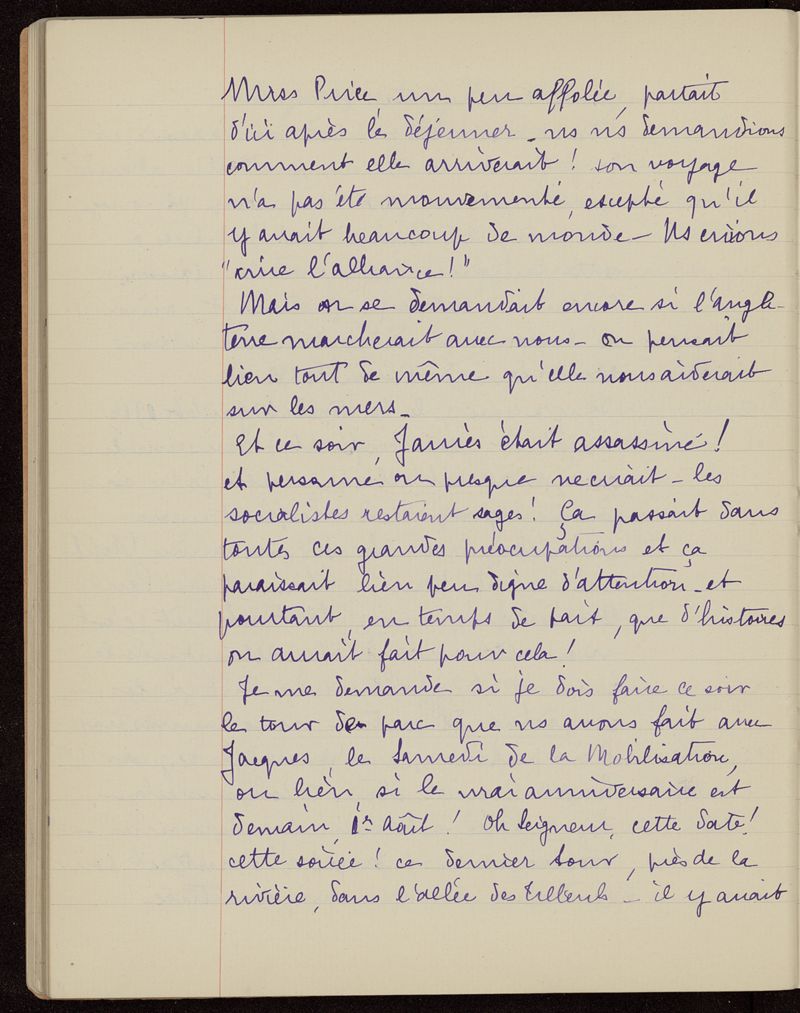 Miss Price un peu affolée, partait
d'ici après le déjeuner _ ns ns demandions
comment elle arriverait ! son voyage
n'a pas été mouvementé, excepté qu'il
y avait beaucoup de monde _ Ns criions
"vive l'alliance !"
Mais on se demandait encore si l'angle-
terre marcherait avec nous _ on pensait
bien tout de même qu'elle nous aiderait
sur les mers _
Et ce soir, Jaurès était assassiné !
et personne ou presque ne criait _ les
socialistes restaient sages ! Ça passait dans
toutes ces grandes préocupations et ça
paraissait bien peu digne d'attention _ et
pourtant, en temps de paix, que d'histoires
on aurait fait pour cela !
Je me demande si je dois faire ce soir
le tour du parc que ns avons fait avec
Jacques, le Samedi de la Mobilisation,
ou bien, si le vrai anniversaire est
demain, 1er Août ! Oh Seigneur, cette date !
cette soirée ! ce dernier tour, près de la
rivière, dans l'allée des tilleuls _ il y avait